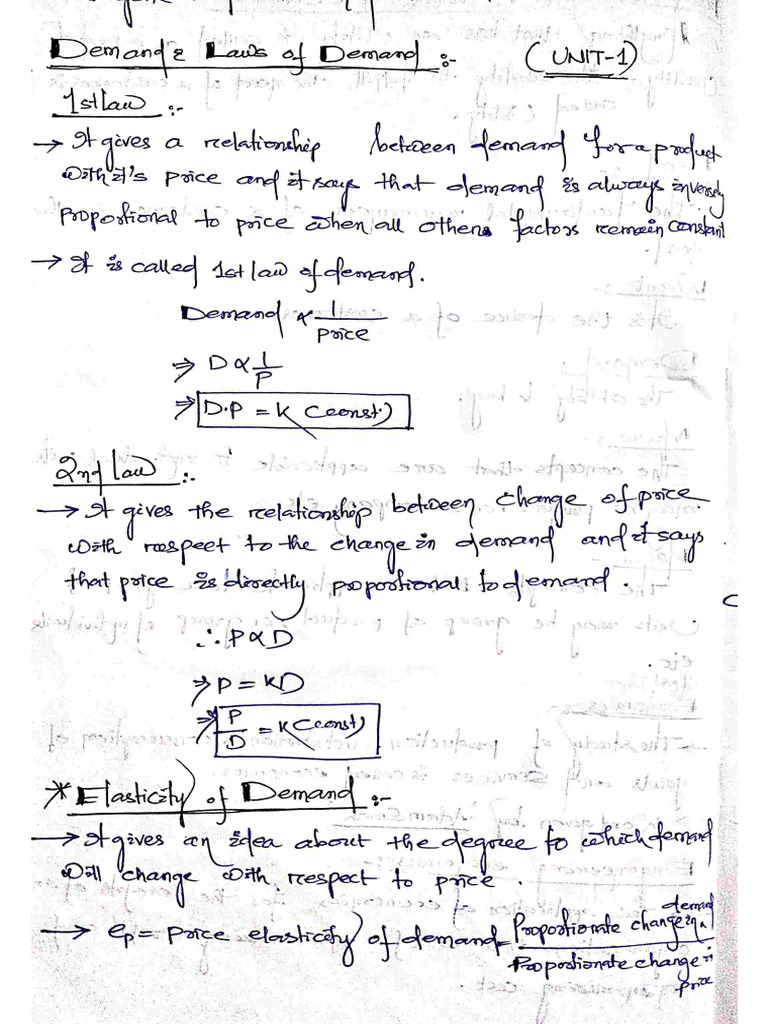 Demand & Laws of Demand :- (UNIT-1)
1st law :-
→ It gives a relationship between demand for a product
with it's price and it says that demand is always inversely
proportional to price when all others factors remain constant
→ It is called 1st law of demand.
Demand ∝ 1/price
⇒ D ∝ 1/P
⇒ D.P = K (const.)
2nd law :-
→ It gives the relationship between change of price
with respect to the change in demand and it says
that price is directly proportional to demand.
∴ P ∝ D
⇒ P = KD
⇒ P/D = K (const)
* Elasticity of Demand :-
→ It gives an idea about the degree to which demand
will change with respect to price.
→ ep = price elasticity of demand = Proportionate change in demand / Proportionate change in price